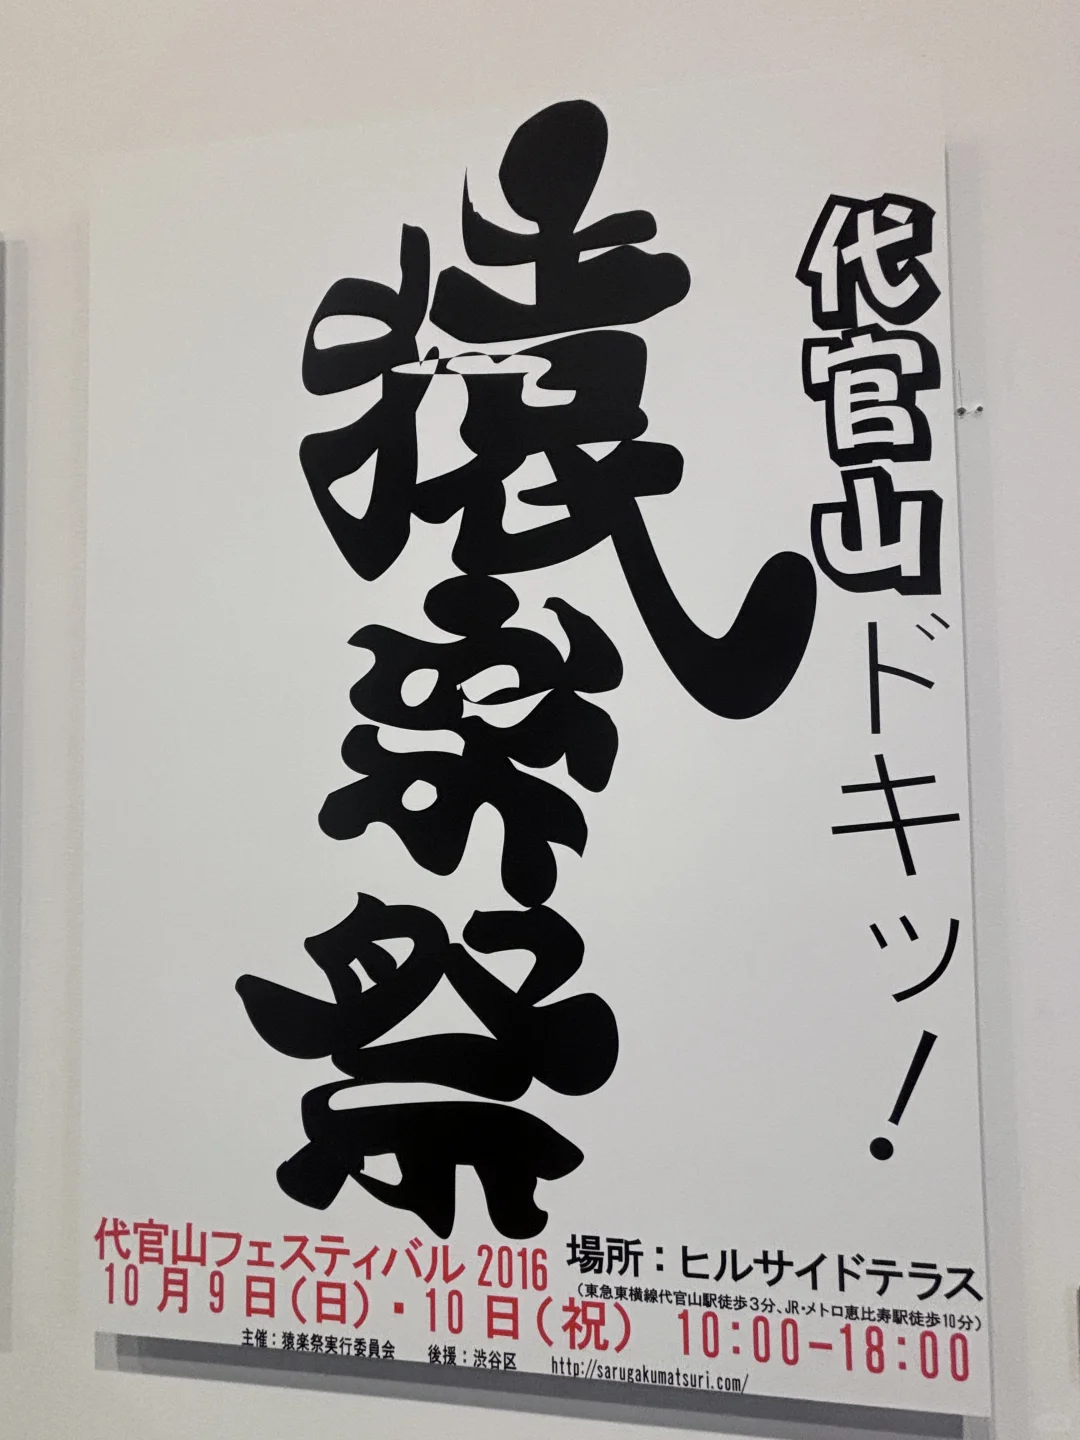 代官山ドキッ!
猿楽祭
代官山フェスティバル 2016
10月9日(日)・10日(祝) 10:00-18:00
場所:ヒルサイドテラス
(東急東横線代官山駅徒歩3分、JR・メトロ恵比寿駅徒歩10分)
主催:猿楽祭実行委員会 後援:渋谷区 http://sarugakumatsuri.com/